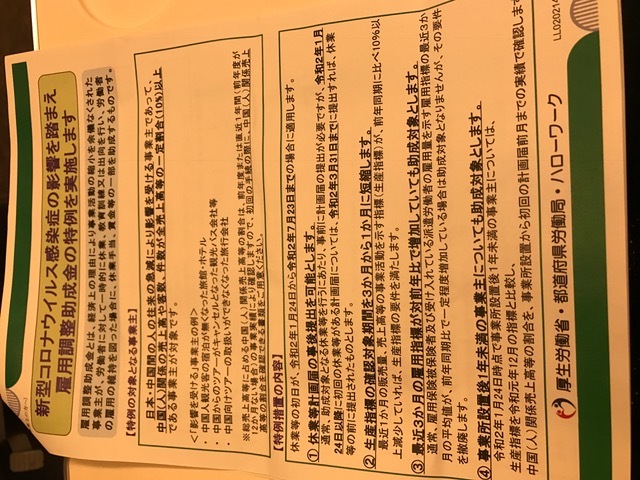 新型コロナウイルス感染症の影響を踏まえ
雇用調整助成金の特例を実施します
雇用調整助成金とは、経済上の理由により事業活動の縮小を余儀なくされた
事業主が、労働者に対して一時的に休業、教育訓練又は出向を行い、労働者
の雇用の維持を図った場合に、休業手当、賃金等の一部を助成するものです。
【特例の対象となる事業主】
日本・中国間の人の往来の急減により影響を受ける事業主であって、
中国(人)関係の売上高や客数、件数が全売上高等の一定割合(10%)以上
である事業主が対象です。
<「影響を受ける」事業主の例>
・中国人観光客の宿泊が無くなった旅館・ホテル
・中国からのツアーがキャンセルとなった観光バス会社等
・中国向けツアーの取扱いができなくなった旅行会社
※総売上高等に占める中国(人)関係売上高等の割合は、前年度または直近1年間(前年度が
12か月ない場合)の事業実績により確認しますので、初回の手続の際に、中国(人)関係売上
高等の割合を確認できる書類をご用意ください。
【特例措置の内容】
休業等の初日が、令和2年1月24日から令和2年7月23日までの場合に適用します。
① 休業等計画届の事後提出を可能とします。
通常、助成対象となる休業等を行うにあたり、事前に計画届の提出が必要ですが、令和2年1月
24日以降に初回の休業等がある計画届については、令和2年3月31日までに提出すれば、休業
等の前に提出されたものとします。
② 生産指標の確認対象期間を3か月から1か月に短縮します。
最近1か月の販売量、売上高等の事業活動を示す指標(生産指標)が、前年同期に比べ10%以
上減少していれば、生産指標の要件を満たします。
③ 最近3か月の雇用指標が対前年比で増加していても助成対象とします。
通常、雇用保険被保険者及び受け入れている派遣労働者の雇用量を示す雇用指標の最近3か
月の平均値が、前年同期比で一定程度増加している場合は助成対象となりませんが、その要件
を撤廃します。
④ 事業所設置後1年未満の事業主についても助成対象とします。
令和2年1月24日時点で事業所設置後1年未満の事業主については、
生産指標を令和元年12月の指標と比較し、
中国(人)関係売上高等の割合を、事業所設置から初回の計画届前月までの実績で確認します
厚生労働省・都道府県労働局・ハローワーク
LL02021